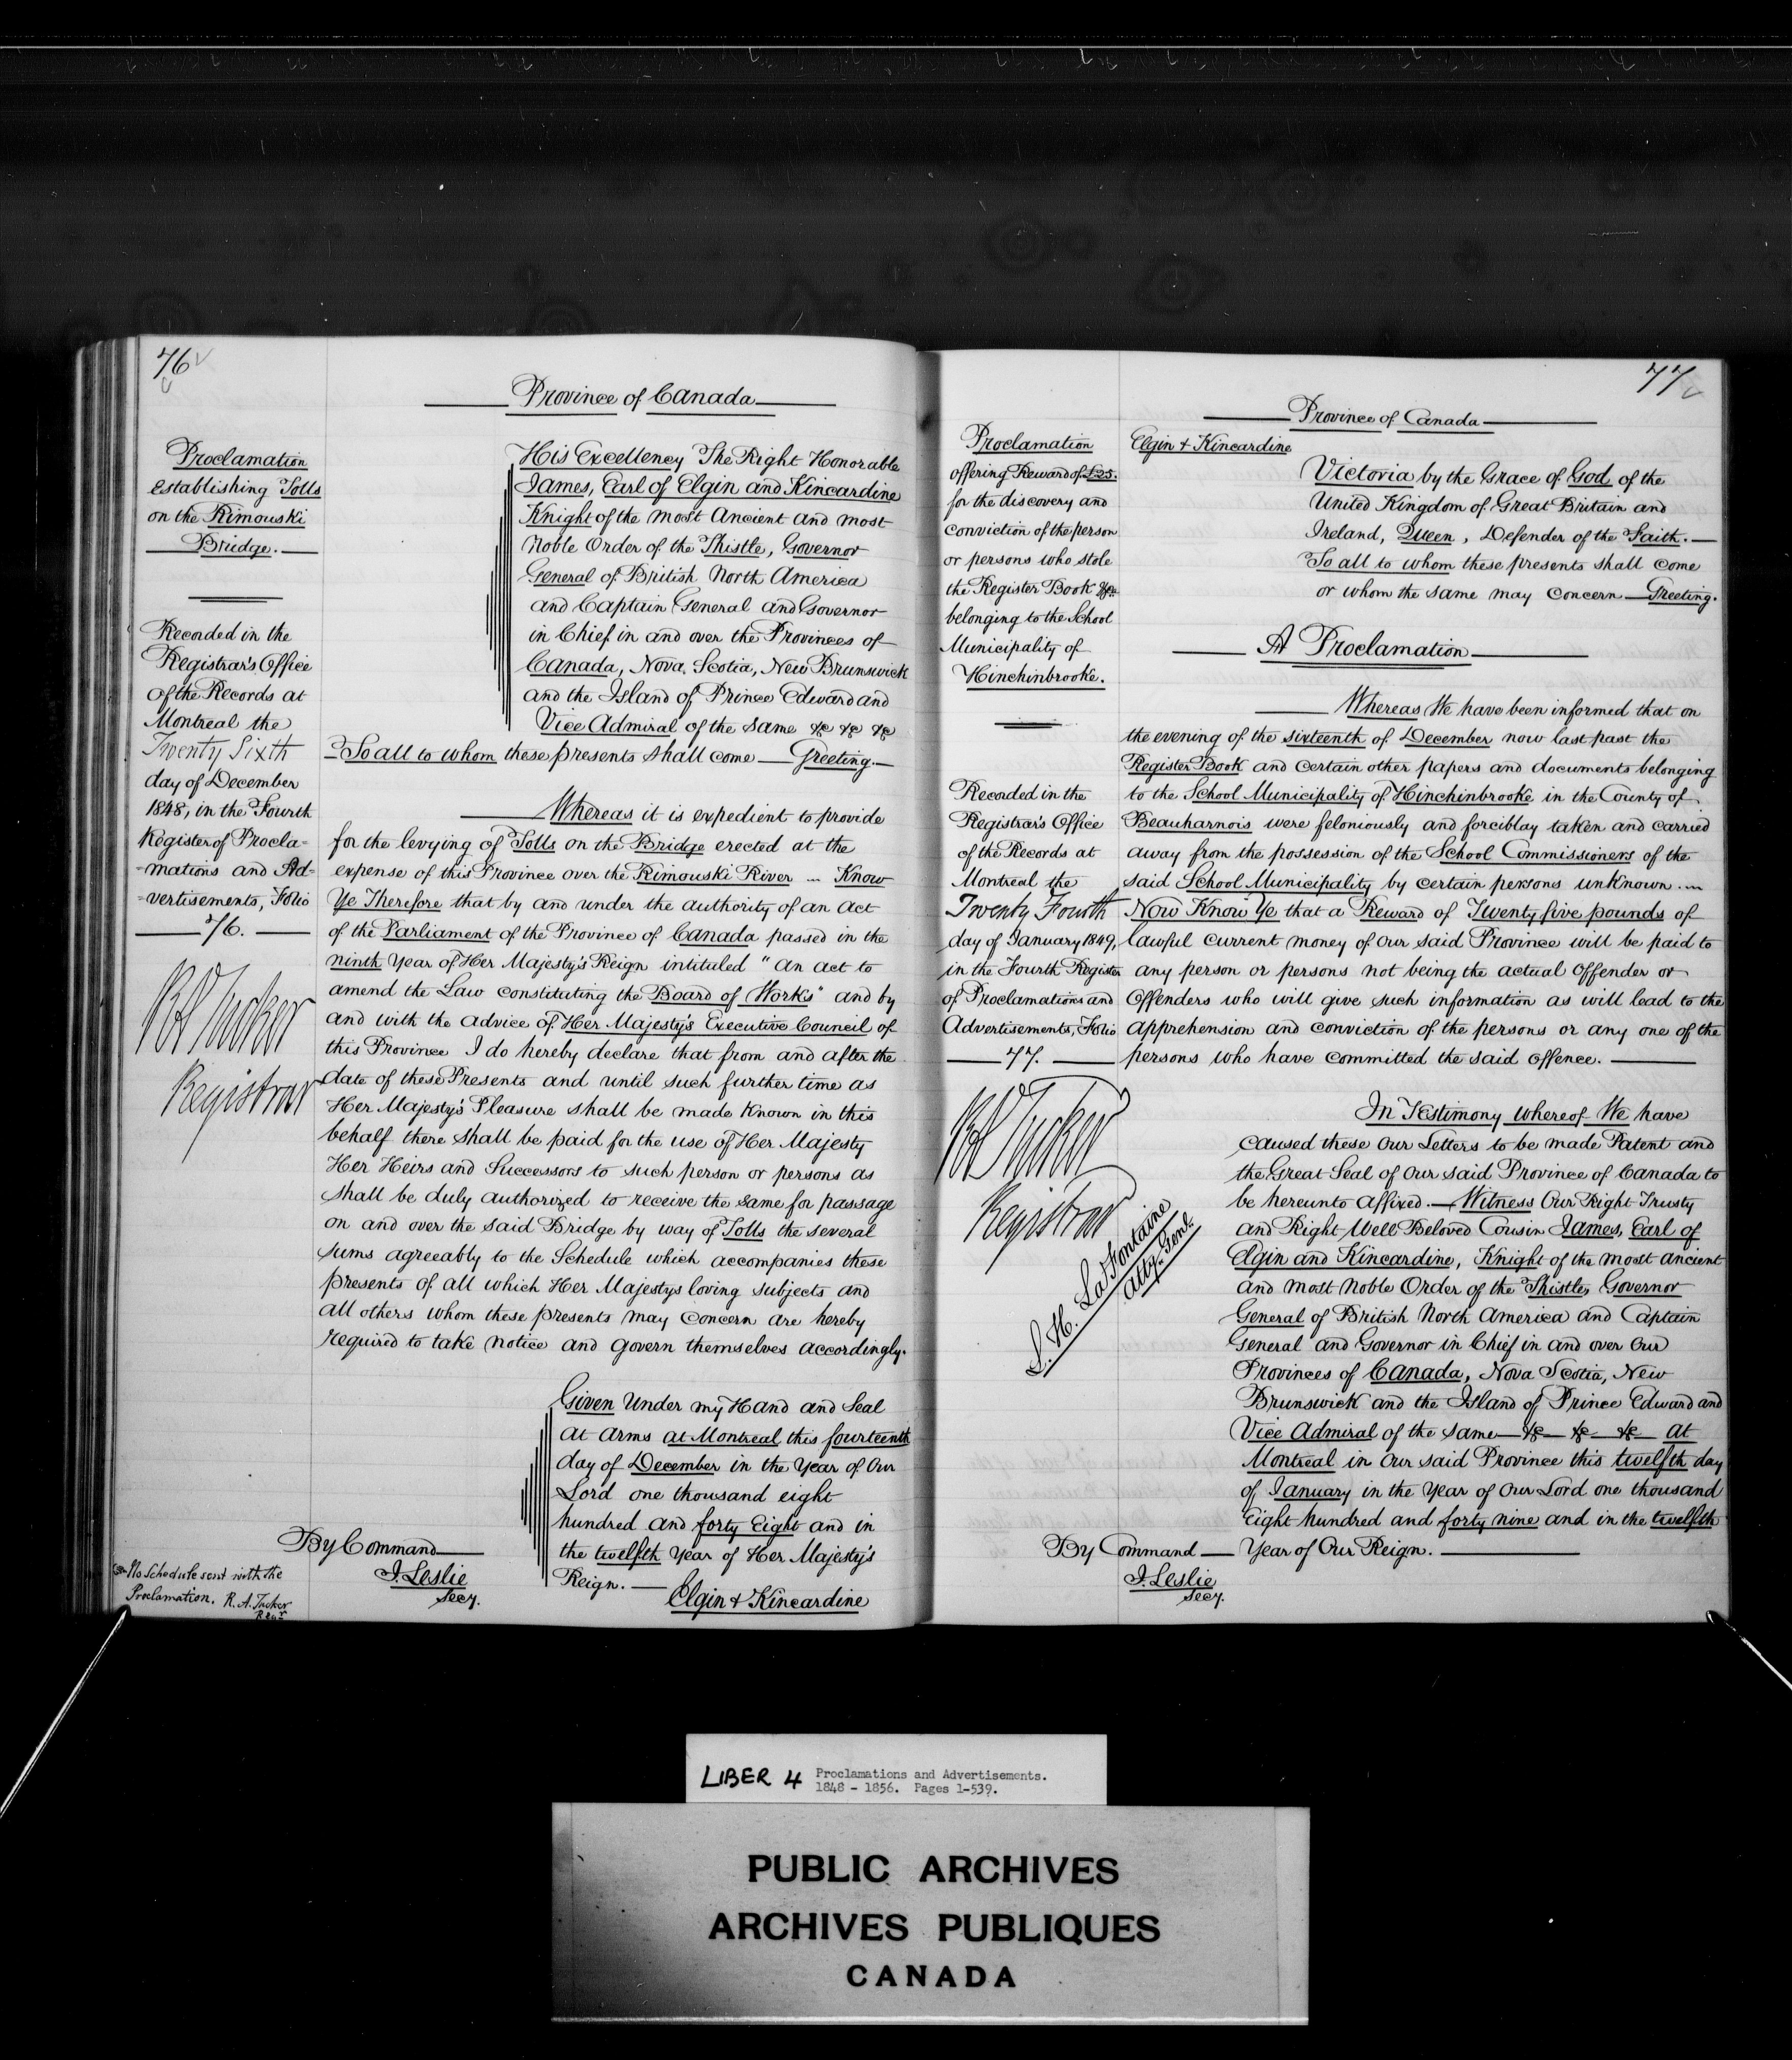 76
Province of Canada
Proclamation
establishing Tolls
on the Rimouski
Bridge.
Recorded in the
Registrar's Office
of the Records at
Montreal the
Twenty Sixth
day of December
1848, in the Fourth
Register of Procla=
=mations and Ad=
=vertisements, Folio
76.
R A Tucker
Registrar
His Excellency The Right Honorable
James, Earl of Elgin and Kincardine
Knight of the most Ancient and most
Noble Order of the Thistle, Governor
General of British North America
and Captain General and Governor
in Chief in and over the Provinces of
Canada, Nova Scotia, New Brunswick
and the Island of Prince Edward and
Vice Admiral of the same &c &c &c
To all to whom these presents shall come — Greeting.—
Whereas it is expedient to provide
for the levying of Tolls on the Bridge erected at the
expense of this Province over the Rimouski River — Know
Ye Therefore that by and under the authority of an Act
of the Parliament of the Province of Canada passed in the
ninth Year of Her Majesty's Reign intituled "An act to
amend the Law constituting the Board of Works" and by
and with the advice of Her Majesty's Executive Council of
this Province I do hereby declare that from and after the
date of these Presents and until such further time as
Her Majesty's Pleasure shall be made known in this
behalf there shall be paid for the use of Her Majesty
Her Heirs and Successors to such person or persons as
shall be duly authorized to receive the same for passage
on and over the said Bridge by way of Tolls the several
sums agreeably to the Schedule which accompanies these
presents of all which Her Majestys loving subjects and
all others whom these presents may concern are hereby
required to take notice and govern themselves accordingly.
Given Under my Hand and Seal
at Arms at Montreal this fourteenth
day of December in the Year of Our
Lord one thousand eight
hundred and forty Eight and in
the twelfth Year of Her Majesty's
Reign. —
Elgin & Kincardine
By Command
J. Leslie
Secy.
No Schedule sent with the
Proclamation. R. A. Tucker
Regr
77
Province of Canada
Proclamation
offering Reward of £25.
for the discovery and
conviction of the person
or persons who stole
the Register Book &c
belonging to the School
Municipality of
Hinchinbrooke.
Recorded in the
Registrar's Office
of the Records at
Montreal the
Twenty Fourth
day of January 1849,
in the Fourth Register
of Proclamations and
Advertisements, Folio
77.
R A Tucker
Registrar
L. H. LaFontaine
Atty. Genl.
Elgin & Kincardine
Victoria by the Grace of God of the
United Kingdom of Great Britain and
Ireland, Queen, Defender of the Faith. —
To all to whom these presents shall come
or whom the same may concern — Greeting.
A Proclamation
Whereas We have been informed that on
the evening of the sixteenth of December now last past the
Register Book and certain other papers and documents belonging
to the School Municipality of Hinchinbrooke in the County of
Beauharnois were feloniously and forciblay taken and carried
away from the possession of the School Commissioners of the
said School Municipality by certain persons unknown. —
Now Know Ye that a Reward of Twenty five pounds of
lawful current money of our said Province will be paid to
any person or persons not being the actual Offender or
Offenders who will give such information as will lead to the
apprehension and conviction of the persons or any one of the
persons who have committed the said offence. —
In Testimony whereof We have
caused these Our Letters to be made Patent and
the Great Seal of Our said Province of Canada to
be hereunto affixed. — Witness Our Right Trusty
and Right Well Beloved Cousin James, Earl of
Elgin and Kincardine, Knight of the most ancient
and most Noble Order of the Thistle, Governor
General of British North America and Captain
General and Governor in Chief in and over Our
Provinces of Canada, Nova Scotia, New
Brunswick and the Island of Prince Edward and
Vice Admiral of the same — &c — &c — &c — at
Montreal in Our said Province this twelfth day
of January in the Year of Our Lord one thousand
Eight hundred and forty nine and in the twelfth
Year of Our Reign. —
By Command —
J. Leslie
Secy.
LIBER 4
Proclamations and Advertisements.
1848 - 1856. Pages 1-539.
PUBLIC ARCHIVES
ARCHIVES PUBLIQUES
CANADA